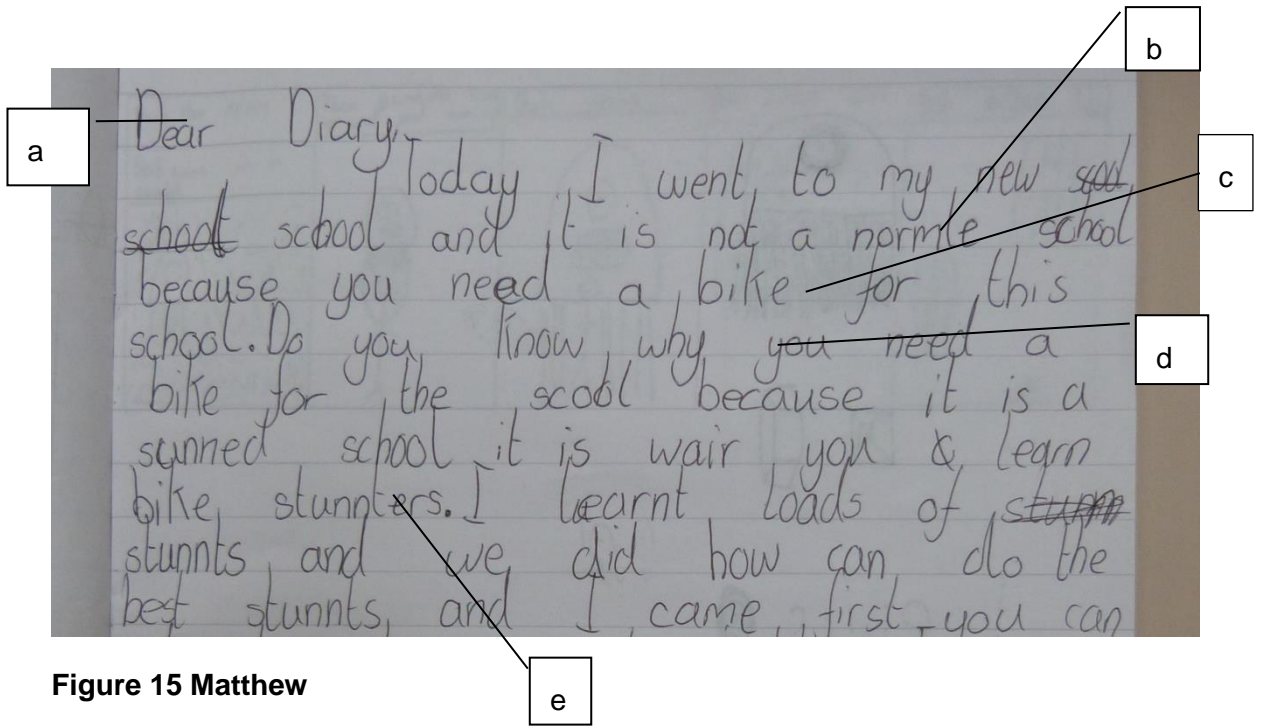 a
b
c
d
e
Dear Diary,
Today I went to my new scool
school school and it is not a normle school
because you need a bike for this
school. Do you know why you need a
bike for the scool because it is a
sunned school it is wair you & learn
bike stunnters. I learnt loads of stunn
stunnts and we did how can do the
best stunnts, and I came first you can
Figure 15 Matthew